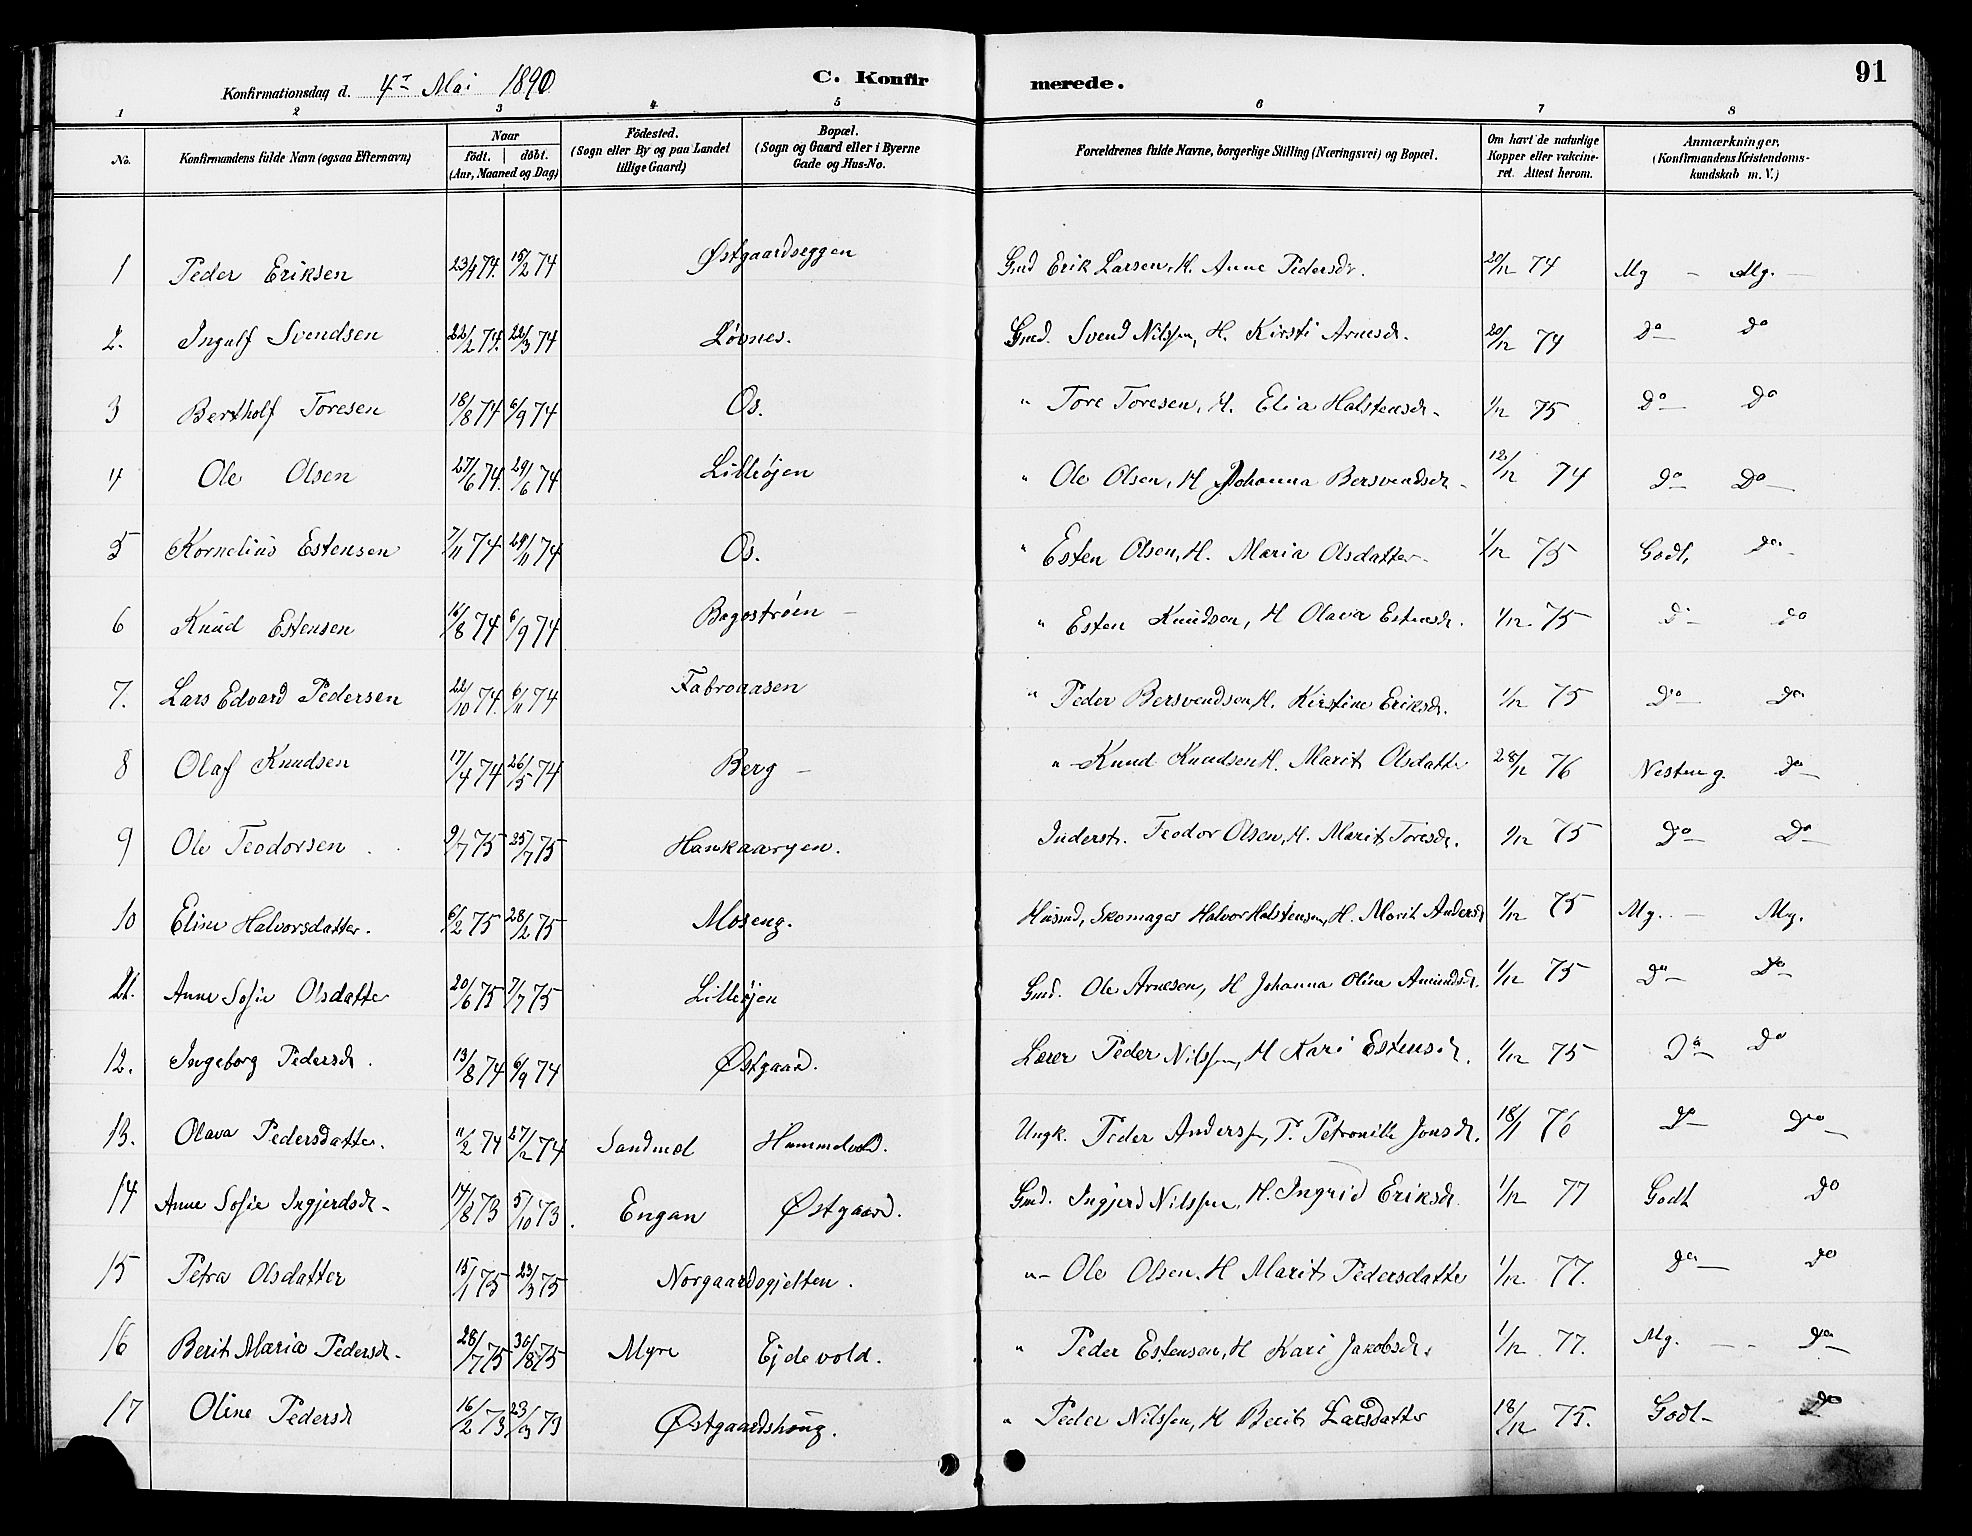 Konfirmationsdag d. 4de Mai 1890 C. Konfirmerede. 91
1 2 3 4 5 6 7 8
No. Konfirmandens fulde Navn (ogsaa Efternavn) Naar födt. döbt. (Aar, Maaned og Dag) Födested. (Sogn eller By og paa Landet tillige Gaard) Bopæl. (Sogn og Gaard eller i Byerne Gade og Hus-No. Forældrenes fulde Navne, borgerlige Stilling (Næringsvei) og Bopæl. Om havt de naturlige Kopper eller vakcineret. Attest herom. Anmærkninger, (Konfirmandens Kristendomskundskab m. V.)
1 Peder Eriksen 74. 15/2 74 Østgaardseggen Gmd Erik Larsen, H. Anne Pedersdr. 20/12 74 Mg — Mg. —
2. Ingulf Svendsen 22/2 74. 22/3 74 Løvnes. Gmd. Svend Nilssen, H. Kirsti Arnesdr. 20/12 74 Do Do
3 Bertholf Toresen 18/8 74 6/9 74 Os. " Tore Toresen, H. Elia Halstensdr. 1/12 75 Do Do
4 Ole Olsen 27/6 74. 29/6 74 Lilleøjen " Ole Olsen, H Johanna Bersvendsdr. 12/12 74 Do Do
5 Kornelius Estensen 7/11 74 29/11 74 Os. " Esten Olsen, H. Maria Olsdatter 1/12 75 Godt, Do
6 Knud Estensen 16/8 74 6/9 74 " Esten Knudsen, H Olava Estensdr. 1/12 75 Do Do
7. Lars Edvard Pedersen 22/10 74. 6/11 74 " Peder Bersvendsen H. Kirstine Eriksdr. 1/12 75 Do Do
8 Olaf Knudsen 17/4 74 26/5 74 Berg — " Knud Knudsen H. Marit Olsdatter 28/12 76 Nesten g. Do
9 Ole Teodorsen 9/7 75 25/7 75 Inderst. Teodor Olsen, H. Marit Toresdr. 1/12 75 Do Do
10 Eline Halvorsdatter. 6/2 75 28/2 75 Moseng. Husmd, Skomager Halvor Halstensen, H. Marit Andersd 1/12 75 Mg. — Mg.
11. Anne Sofie Olsdatter 20/6 75 7/7 75 Lilleøjen Gmd. Ole Arnesen, H Johanna Oline Amundsdr. 1/12 75 Do Do
12. Ingeborg Pedersdr. 13/8 74 6/9 74 Østgaard. Lærer Peder Nilssen, H Kari Estensdr. 1/12 75 Do Do
13. Olava Pedersdatter. 11/2 74 74 Hummelvold. Ungk. Peder Anderss., P. Petronille Jonsdr. 18/1 76 Do Do
14 Anne Sofie Ingjerdsdr. 14/8 73 5/10 73. Engan Østgaard. Gmd. Ingjerd Nilssen, H. Ingrid Eriksdr. 1/12 77 Godt Do
15 Petra Olsdatter 15/1 75 23/3 75 Norgaardsgjelten. " Ole Olsen, H Marit Pedersdatter 1/12 77. Do Do
16 Berit Maria Pedersdr. 28/7 75 30/8 75 Myre Ejdevold. " Peder Estensen, H Kari Jakobsdr. 1/12 77. Mg. Do
17 Oline Pedersdr 16/2 73 23/3 73 Østgaardshaug. " Peder Nilssen, H Berit Larsdatter 18/12 75. Godt Do